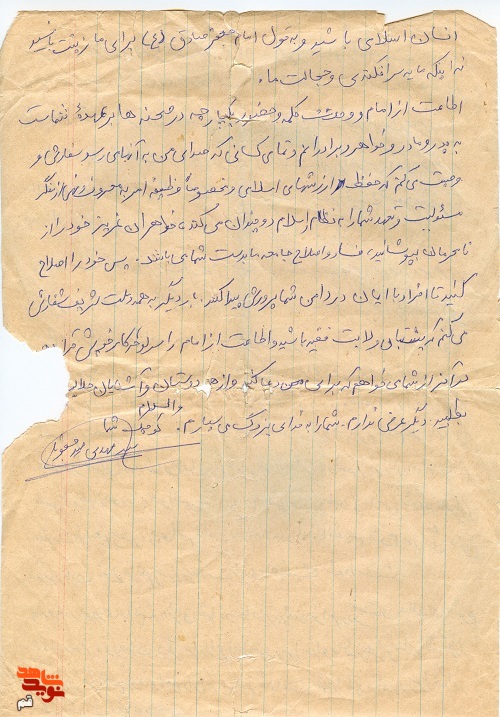 انسان اسلامی باشید و به قول امام جعفر صادق (ع) برای ما زینت باشید
نه اینکه مایه سرافکندگی و خجالت ما.
اطاعت از امام و وحدت کلمه و حضور یکپارچه در صحنه ها بر عهدهٔ شماست
به پدر و مادر و خواهر و برادرانم و تمامی کسانی که صدای من به آنها می رسد سفارش و
وصیت می کنم که حفظ ارزشهای اسلامی و مخصوصاً وظیفه امر به معروف و نهی از منکر
مسئولیت و تعهد شما را به نظام اسلام دوچندان می کند، خواهران عزیز خود را از
نامحرمان بپوشانید، فساد و اصلاح جامعه بدست شما می باشد. پس خود را اصلاح
کنید تا افراد با ایمان در دامن شما پرورش پیدا کند. بار دیگر به همه ملت شریف سفارش
می کنم که پشتیبان ولایت فقیه باشید و اطاعت از امام را سرلوحه کار خویش قرار
در آخر از شما می خواهم که برای من دعا کنید و از همه دوستان و آشنایان حلالیت
بطلبید دیگر عرضی ندارم. شما را به خدای بزرگ می سپارم.
والسلام
کوچک شما
مهدی
نوید شاهد
قم